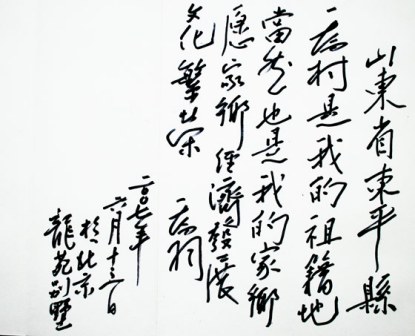 山東省東平縣
喬村是我的祖籍地
當然也是我的家鄉
愿家鄉經濟發展
文化繁榮
喬羽
二〇〇七年
六月十三日
於北京
龍苑别墅